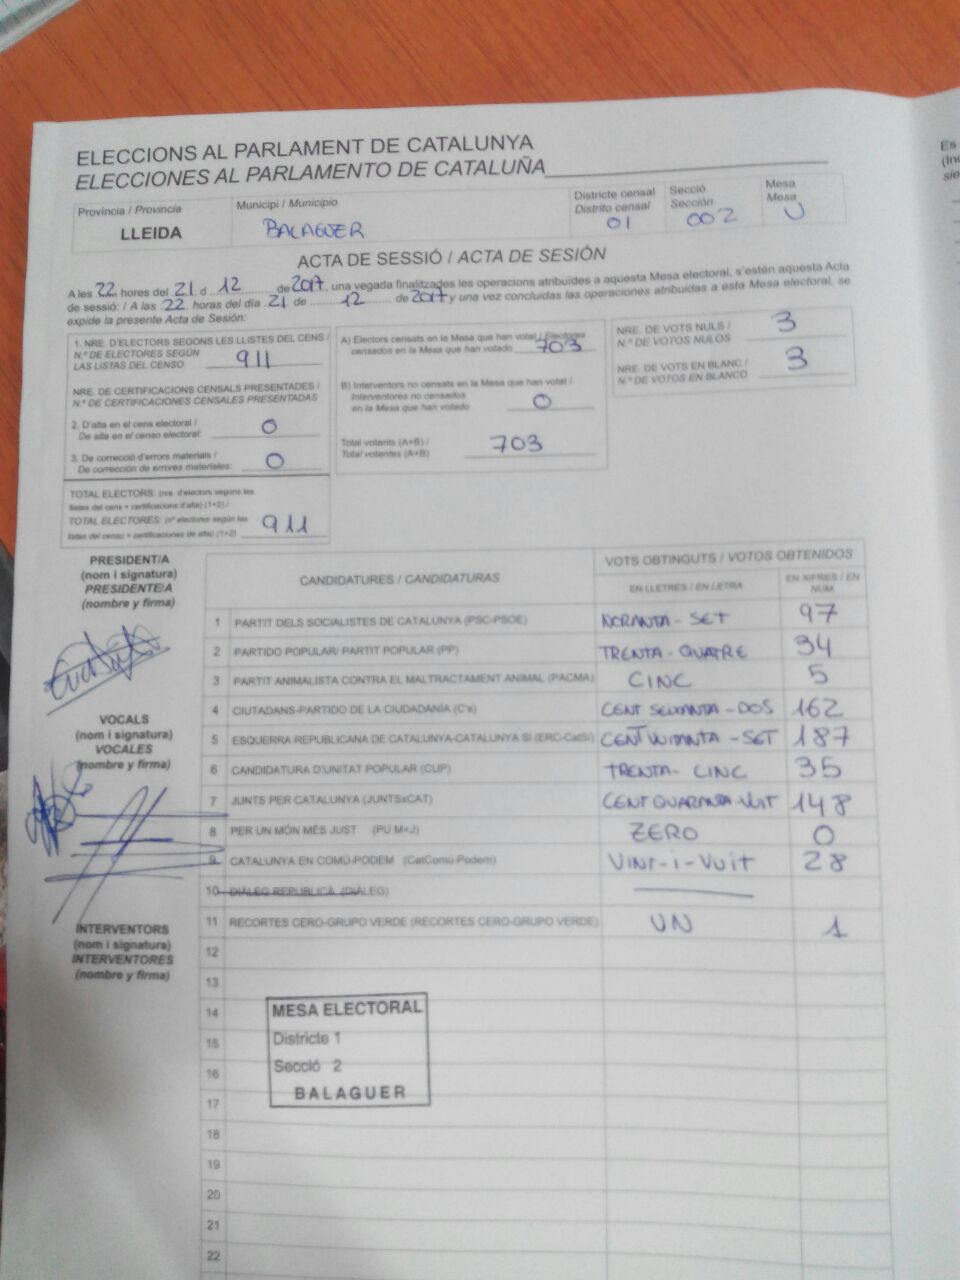 ELECCIONS AL PARLAMENT DE CATALUNYA
ELECCIONES AL PARLAMENTO DE CATALUÑA
Província / Provincia
LLEIDA
Municipi / Municipio
BALAGUER
Districte censal
Distrito censal
01
Secció
Sección
002
Mesa
Mesa
U
ACTA DE SESSIÓ / ACTA DE SESIÓN
A les 22 hores del 21 d 12 de 2017, una vegada finalitzades les operacions atribuïdes a aquesta Mesa electoral, s'estén aquesta Acta
de sessió: / A las 22 horas del día 21 de 12 de 2017 y una vez concluidas las operaciones atribuidas a esta Mesa electoral, se
expide la presente Acta de Sesión:
1. NRE. D'ELECTORS SEGONS LES LLISTES DEL CENS /
N.º DE ELECTORES SEGÚN
LAS LISTAS DEL CENSO 911
NRE. DE CERTIFICACIONS CENSALS PRESENTADES /
N.º DE CERTIFICACIONES CENSALES PRESENTADAS
2. D'alta en el cens electoral /
De alta en el censo electoral: 0
3. De correcció d'errors materials /
De corrección de errores materiales: 0
TOTAL ELECTORS: (nre. d'electors segons les
llistes del cens + certificacions d'alta) (1+2) /
TOTAL ELECTORES: (nº electores según las
listas del censo + certificaciones de alta) (1+2) 911
A) Electors censats en la Mesa que han votat / Electores
censados en la Mesa que han votado 703
B) Interventors no censats en la Mesa que han votat /
Interventores no censados
en la Mesa que han votado 0
Total votants (A+B) /
Total votantes (A+B) 703
NRE. DE VOTS NULS /
N.º DE VOTOS NULOS 3
NRE. DE VOTS EN BLANC /
N.º DE VOTOS EN BLANCO 3
PRESIDENT/A
(nom i signatura)
PRESIDENTE/A
(nombre y firma)
VOCALS
(nom i signatura)
VOCALES
(nombre y firma)
INTERVENTORS
(nom i signatura)
INTERVENTORES
(nombre y firma)
CANDIDATURES / CANDIDATURAS
VOTS OBTINGUTS / VOTOS OBTENIDOS
EN LLETRES / EN LETRA
EN XIFRES / EN NUM.
1 PARTIT DELS SOCIALISTES DE CATALUNYA (PSC-PSOE) NORANTA-SET 97
2 PARTIDO POPULAR/ PARTIT POPULAR (PP) TRENTA-QUATRE 34
3 PARTIT ANIMALISTA CONTRA EL MALTRACTAMENT ANIMAL (PACMA) CINC 5
4 CIUTADANS-PARTIDO DE LA CIUDADANÍA (C's) CENT SEIXANTA-DOS 162
5 ESQUERRA REPUBLICANA DE CATALUNYA-CATALUNYA SÍ (ERC-CatSí) CENT VUITANTA-SET 187
6 CANDIDATURA D'UNITAT POPULAR (CUP) TRENTA-CINC 35
7 JUNTS PER CATALUNYA (JUNTSxCAT) CENT QUARANTA-VUIT 148
8 PER UN MÓN MÉS JUST (PU M+J) ZERO 0
9 CATALUNYA EN COMÚ-PODEM (CatComú-Podem) VINT-I-VUIT 28
10 DIÀLEG REPUBLICÀ (DIÀLEG)
11 RECORTES CERO-GRUPO VERDE (RECORTES CERO-GRUPO VERDE) UN 1
12
13
14
15
16
17
18
19
20
21
22
MESA ELECTORAL
Districte 1
Secció 2
BALAGUER
Es